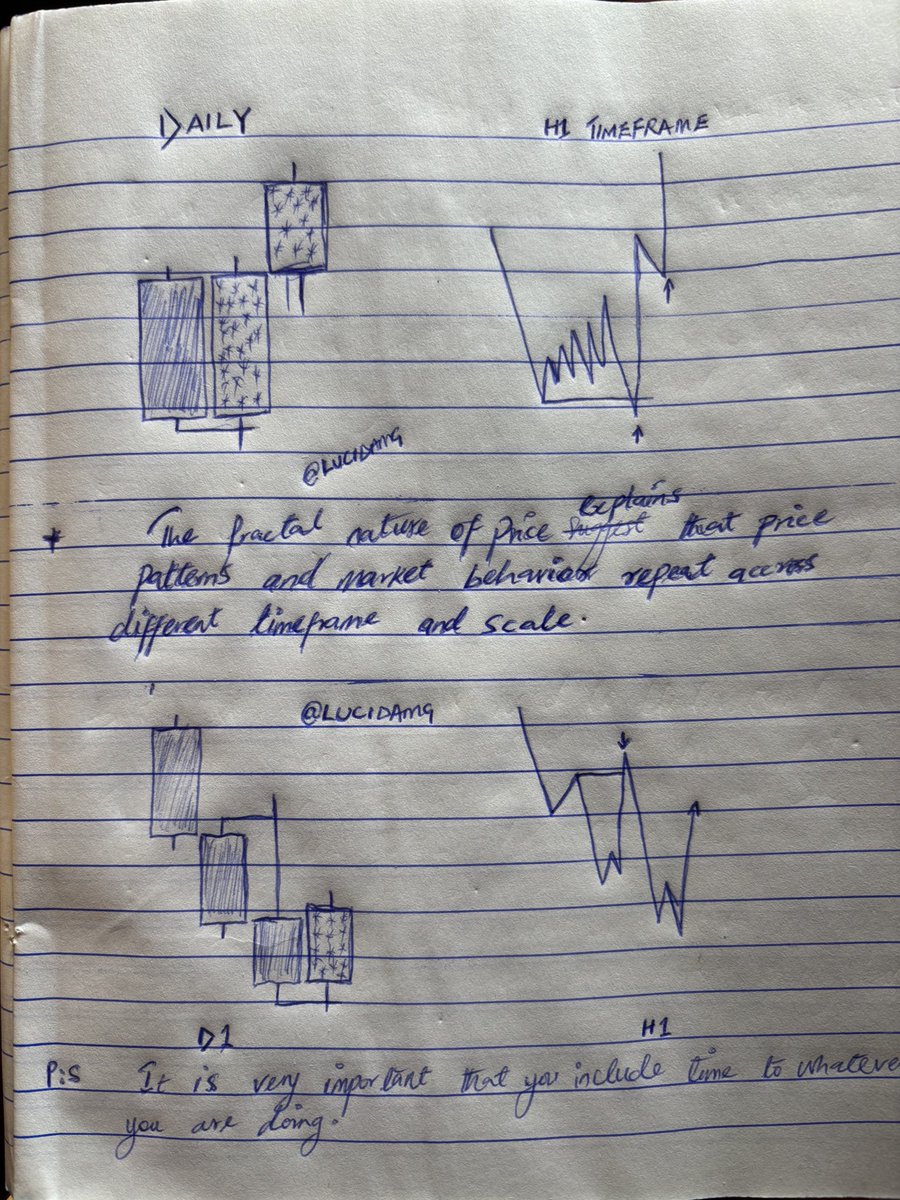 DAILY
H1 TIMEFRAME
@LUCIDAMG
* The fractal nature of price explains suggest that price
patterns and market behavior repeat accross
different timeframe and scale.
@LUCIDAMG
D1
H1
P:S It is very important that you include time to whatever
you are doing.